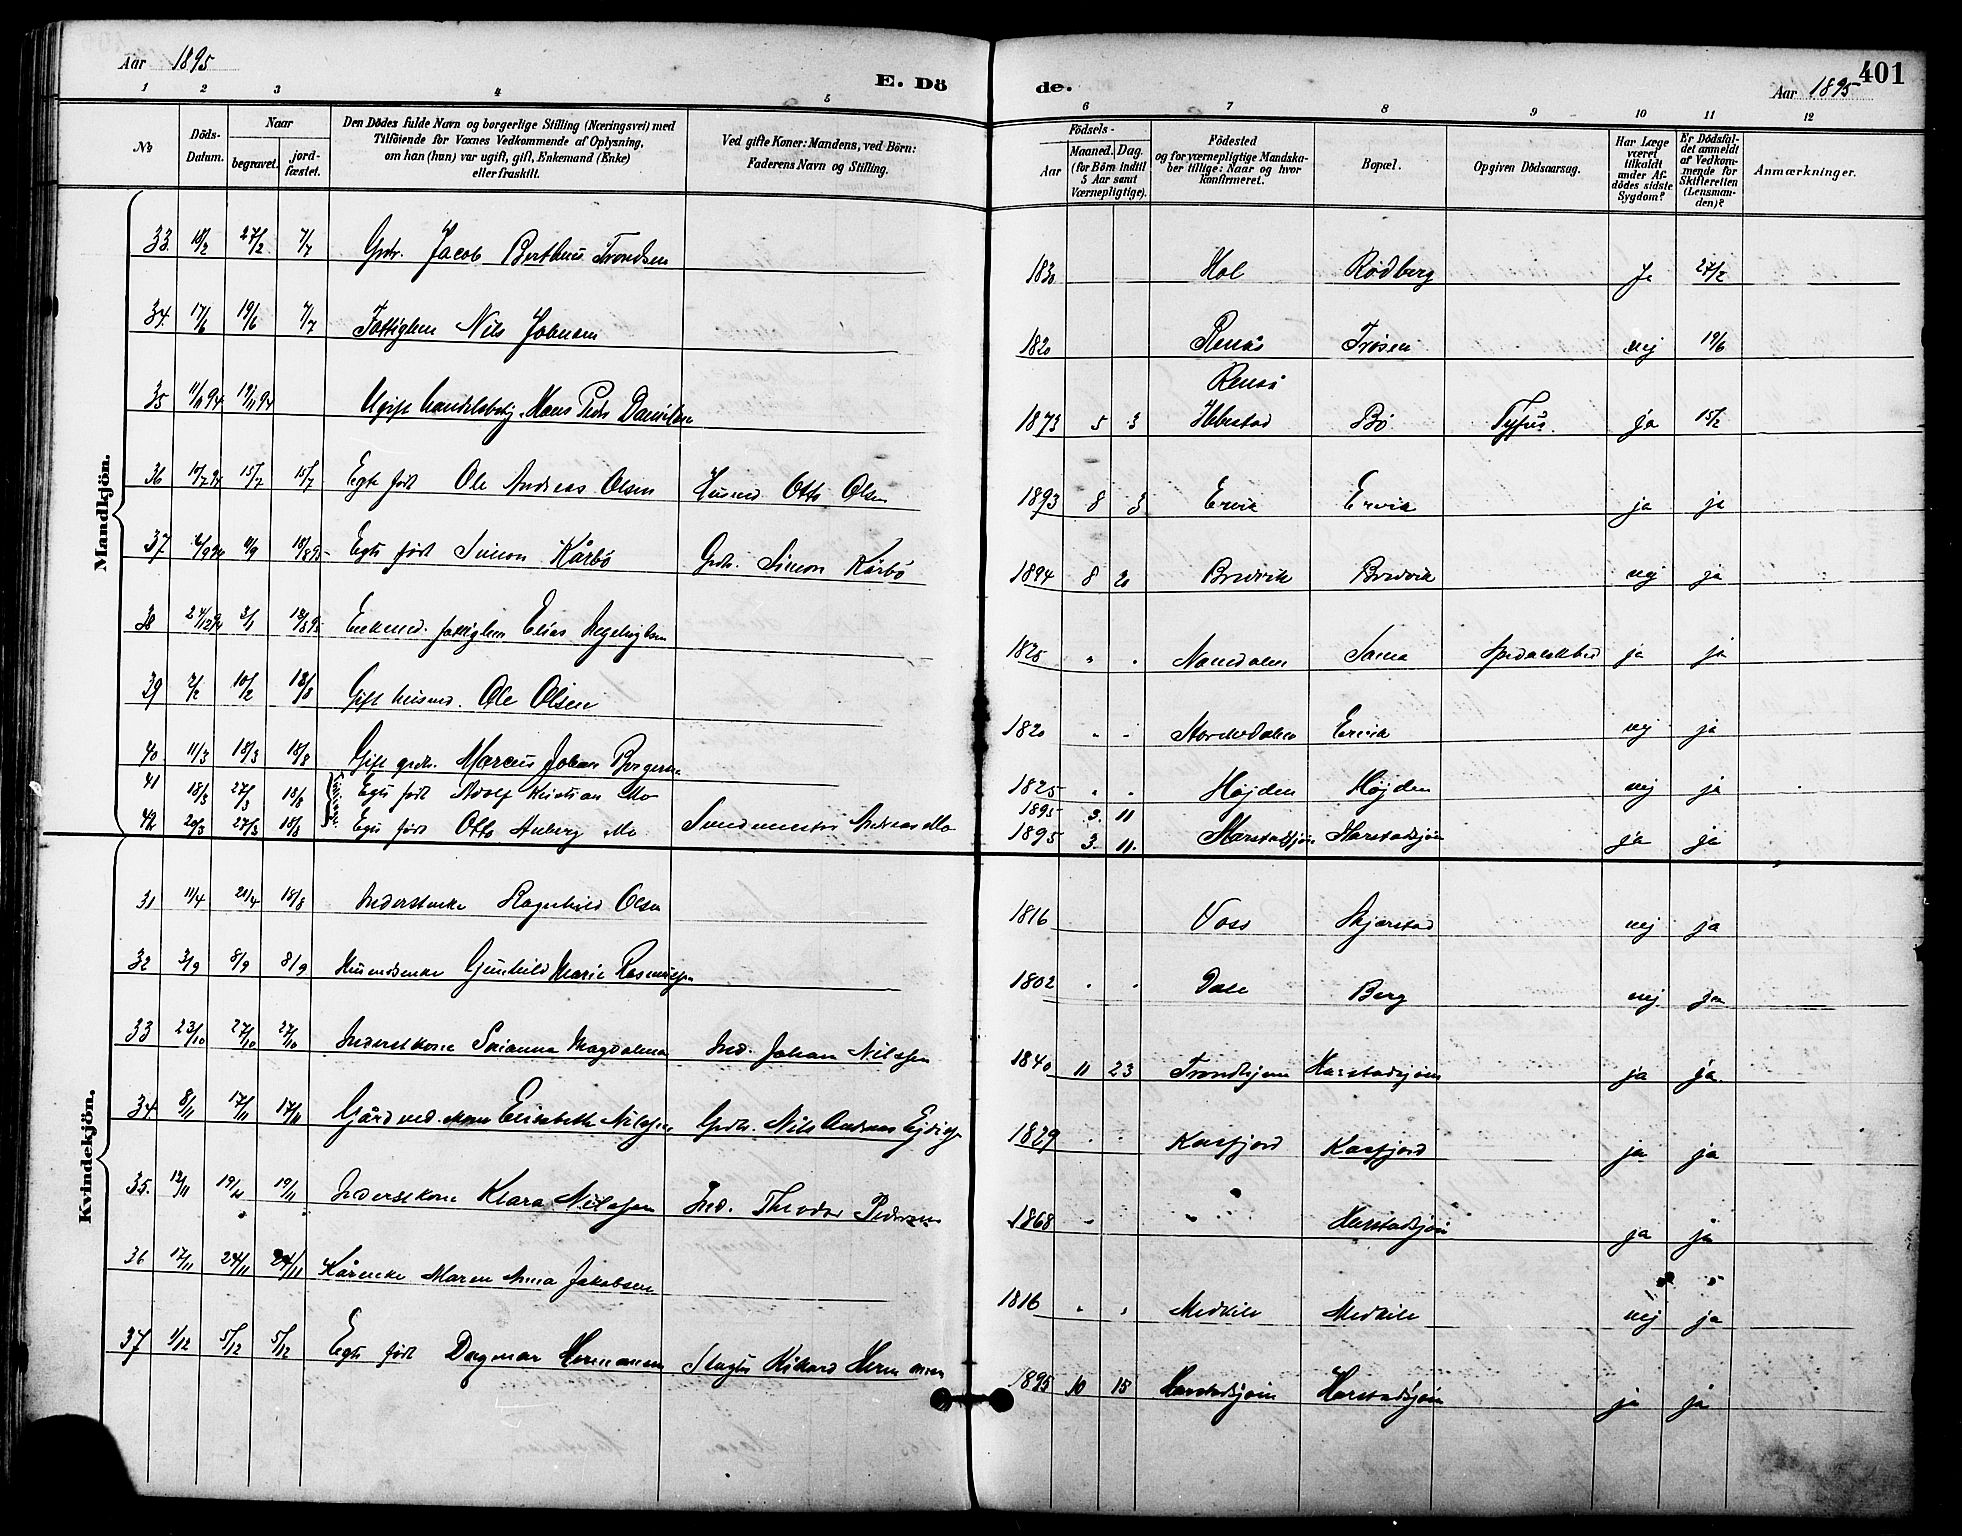 Aar 1895
E. Döde.
Aar 1895
401
1 2 3 4 5 6 7 8 9 10 11 12
No
Döds-Datum.
Naar
begravet.
jord-fæstet.
Den Dödes fulde Navn og borgerlige Stilling (Næringsvei) med
Tilföiende for Voxnes Vedkommende af Oplysning,
om han (hun) var ugift, gift, Enkemand (Enke)
eller fraskilt.
Ved gifte Koner: Mandens, ved Börn:
Faderens Navn og Stilling.
Födsels-
Aar
Maaned. Dag.
(for Börn indtil
5 Aar samt
Værnepligtige).
Födested
og for værnepligtige Mandska-
ber tillige: Naar og hvor
konfirmeret.
Bopæl.
Opgiven Dödsaarsag.
Har Læge
været
tilkaldt
under Af-
dödes sidste
Sygdom?
Er Dödsfal-
det anmeldt
af Vedkom-
mende for
Skifteretten
(Lensman-
den)?
Anmærkninger.
Mandkjön.
33. 18/2 27/2 7/7 Grdr. Jacob Bertheus Trondsen 1830 Hol Rødberg Ja 27/2
34. 17/6 19/6 7/7 Fattiglem Nils Johnsen 1820 Renså Trøsen nej 19/6
Renså
35 11/11 94 19/11 94 Ugift handelsbetj. Hans Peder Danielsen 1873 5 3 Ibbestad Bö Tyfus ja 15/2
36 10/7 94 15/7 15/7 Egte født Ole Andreas Olsen Husmd. Otto Olsen 1893 8 3 Ervik Ervik ja ja
37 9/9 18/8 95 Egte født Simon Kårbø Grdr. Simon Kårbø 1894 8 20 Bredvik Bredvik nej ja
38 24/12 94 3/1 18/8 95 Enkemd. fattiglem Elias 1825 " " Namdalen Sama Spedalskhed ja ja
39 2/2 10/2 18/8 Gift husmd. Ole Olsen 1820 " " Ervik nej ja
40 11/3 18/3 18/8 Gift grdr. Marcus Johan 1825 " " Højden Højden nej ja
41 18/3 27/3 18/8 Egte født Adolf Kristian Mo 1895 3. 11
42 20/3 27/3 18/8 Egte født Otto Auberg Mo. Andreas Mo 1895 3. 11. Harstadsjøen Harstadsjøen ja ja
Kvindekjön.
31 11/4 21/4 18/8 Inderstenke Ragnhild Olsen 1816 Voss Skjærstad nej ja
32 3/9 8/9 8/9 Husmdsenke Gunhild Marie Rasmussen 1802 " " Dale Berg nej ja
33 23/10 27/10 27/10 Inderstkone Marianna Magdalena Ind. Johan Nilssen 1840 11 23 Trondhjem Harstadsjøen ja ja
34. 8/11 17/11 17/11 Gårdmd. kone Elisabeth Nilssen Grdr. Nils Andreas 1829 " " Kasfjord Kasfjord ja ja
35. 12/11 19/11 19/11 Inderstkone Klara Nilssen Ind. Theodor Pedersen 1868 " " " Harstadsjøen ja ja
36 17/11 24/11 24/11 Kårenke Maren Anna Jakobsen 1816 " " Medkile Medkile nej ja
37 1/12 5/12 5/12 Egte født Dagmar Hermansen Slagter Rikard Hermansen 1895 10 15 Harstadsjøen Harstadsjøen ja ja